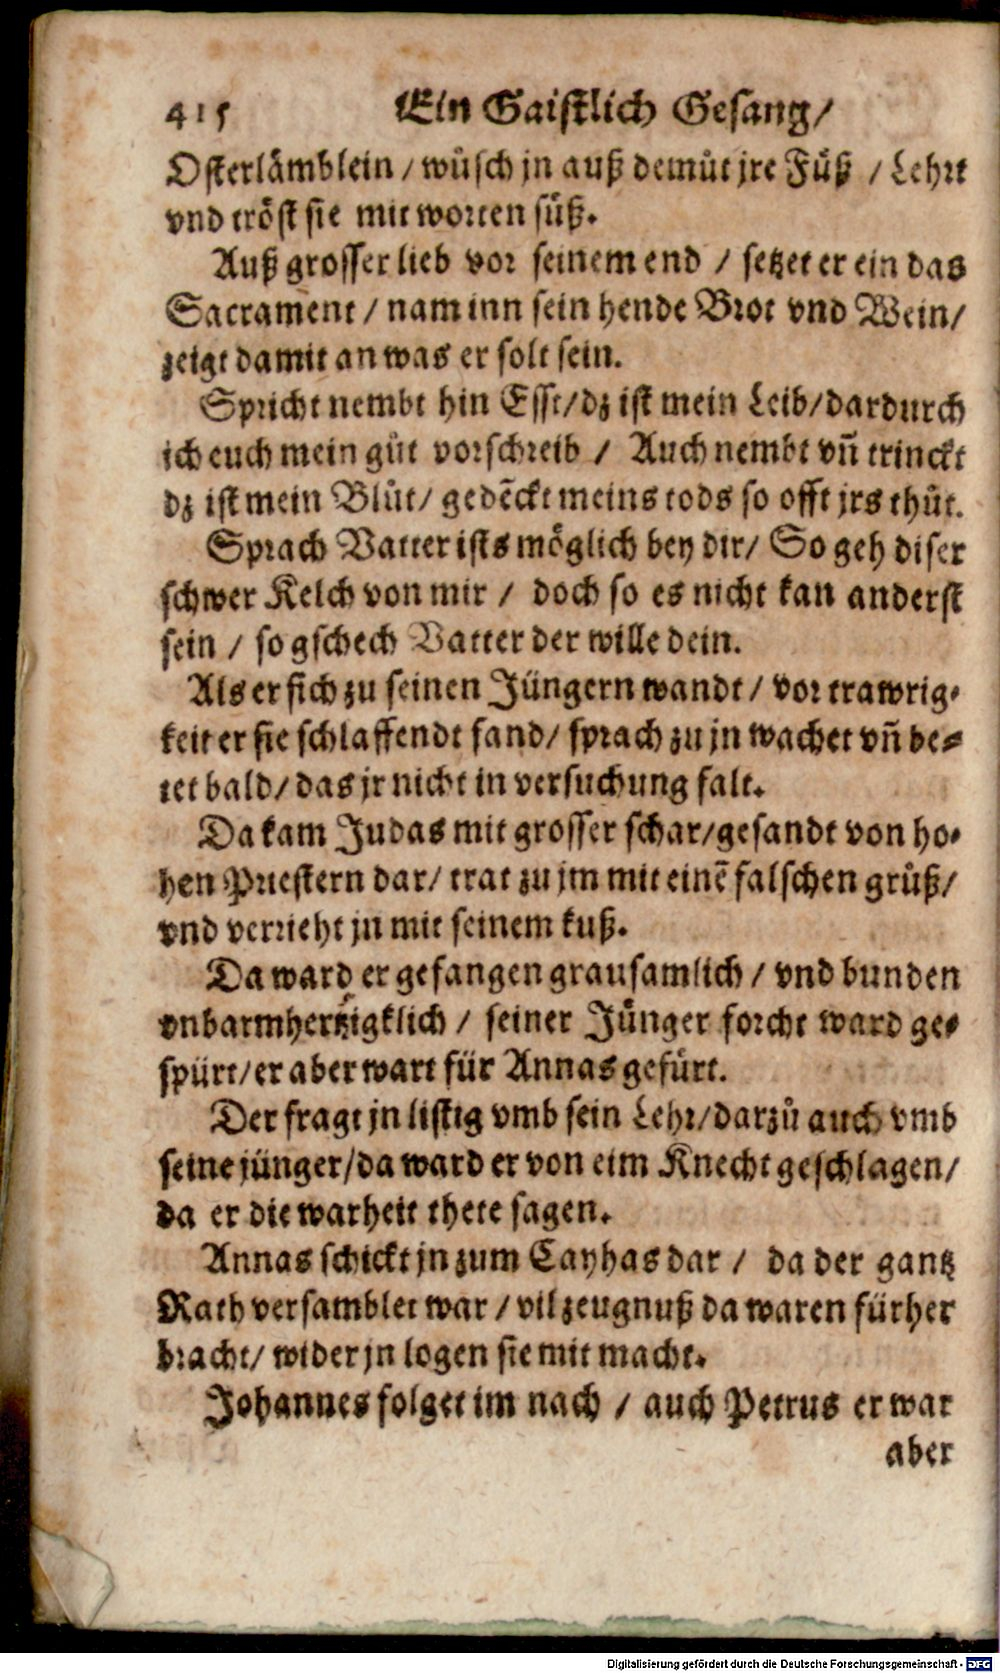 415 Ein Gaistlich Gesang/
Osterlämblein / wůsch jn auß demůt jre Fůß / Lehrt
vnd tröst sie mit worten süß.
Auß grosser lieb vor seinem end / setzet er ein das
Sacrament / nam inn sein hende Brot vnd Wein/
zeigt damit an was er solt sein.
Spricht nembt hin Esst/dz ist mein Leib/dardurch
ich euch mein gůt vorschreib / Auch nembt vñ trinckt
dz ist mein Blůt/ gedẽckt meins tods so offt jrs thůt.
Sprach Vatter ists möglich bey dir/ So geh diser
schwer Kelch von mir / doch so es nicht kan anderst
sein / so gschech Vatter der wille dein.
Als er sich zu seinen Jüngern wandt / vor trawrig-
keit er sie schlaffendt fand/ sprach zu jn wachet vñ be-
tet bald/ das jr nicht in versuchung falt.
Da kam Judas mit grosser schar/gesandt von ho-
hen Priestern dar/ trat zu jm mit einẽ falschen grůß/
vnd verrieht jn mit seinem kuß.
Da ward er gefangen grausamlich / vnd bunden
vnbarmhertzigklich / seiner Jünger forcht ward ge-
spürt/er aber wart für Annas gefürt.
Der fragt jn listig vmb sein Lehr/darzů auch vmb
seine jünger/da ward er von eim Knecht geschlagen/
da er die warheit thete sagen.
Annas schickt jn zum Cayhas dar / da der gantz
Rath versamblet war / vil zeugnuß da waren fürher
bracht/ wider jn logen sie mit macht.
Johannes folget im nach / auch Petrus er war
aber
Digitalisierung gefördert durch die Deutsche Forschungsgemeinschaft - DFG